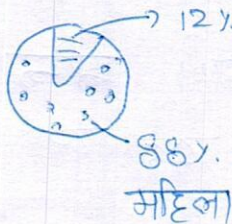 12%
88%
महिला